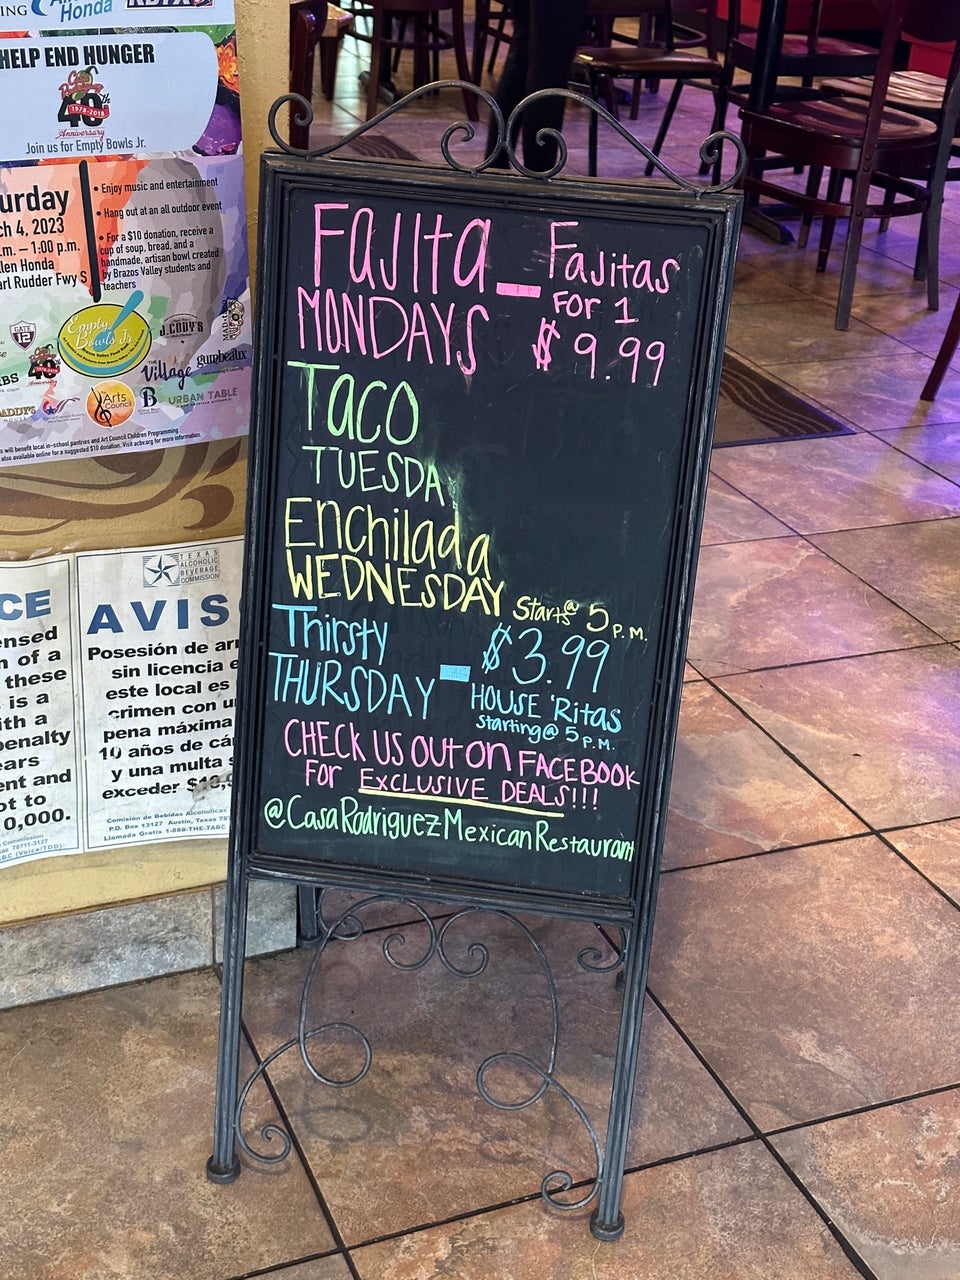 Honda
HELP END HUNGER
40th
1978-2018
Anniversary
Join us for Empty Bowls Jr.
urday
ch 4, 2023
.m. – 1:00 p.m.
llen Honda
arl Rudder Fwy S
• Enjoy music and entertainment
• Hang out at an all outdoor event
• For a $10 donation, receive a
cup of soup, bread, and a
handmade, artisan bowl created
by Brazos Valley students and
teachers
Empty
Bowls Jr.
GATE
12
J.CODY'S
THE
Village
gumbeaux
Arts
Council
B
URBAN TABLE
s will benefit local in-school pantries and Art Council Children Programming
also available online for a suggested $10 donation. Visit acbv.org for more information.
TEXAS
ALCOHOLIC
BEVERAGE
COMMISSION
CE
ensed
n of a
these
is a
ith a
penalty
ears
ent and
ot to
0,000.
Commission
as 78711-3127
ABC (Voice/TDD)
AVIS
Posesión de ar
sin licencia e
este local es
crimen con u
pena máxima
10 años de cá
y una multa
exceder $10,0
Comisión de Bebidas Alcoholicas
P.O. Box 13127 Austin, Texas 78
Llamada Gratis 1-888-THE-TABC
Fajita - Fajitas
MONDAYS FOR 1
$9.99
Taco
TUESDA
Enchilada
WEDNESDAY Starts@ 5 P.M.
Thirsty
THURSDAY - $3.99
HOUSE 'Ritas
starting@ 5 P.M.
CHECK US OUT ON FACEBOOK
For EXCLUSIVE DEALS!!!
@CasaRodriguezMexicanRestaurant